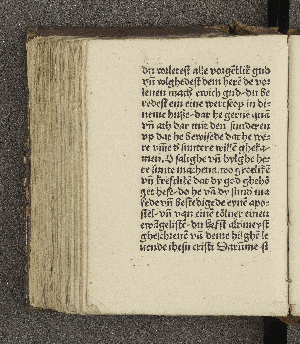 du vɔlletest alle vorgētlik gud
vn̄ vɔlghedest dem herē de vor
lenen mach ewich gud· du be
redest em eine wertscop in di
neme huße· dat he gerne quā
vn̄ ath dar mit den sunderen
vp dat he bewisede dat he we
re vm̄e d' suntere willē gheka
men, O salighe vn̄ hylghe he
re sunte matheus, wo grotlikē
vn̄ krefftlikē dat dy god ghehō
get heft· do he vā dy sunder ma
kede vn̄ bestedigede eynē apo
stel· vn̄ van enē tölner einen
ewāgelistē· du hefst alrmeyst
ghescreuē vā deme hilghē le
uende ihesu cristi Darūme st